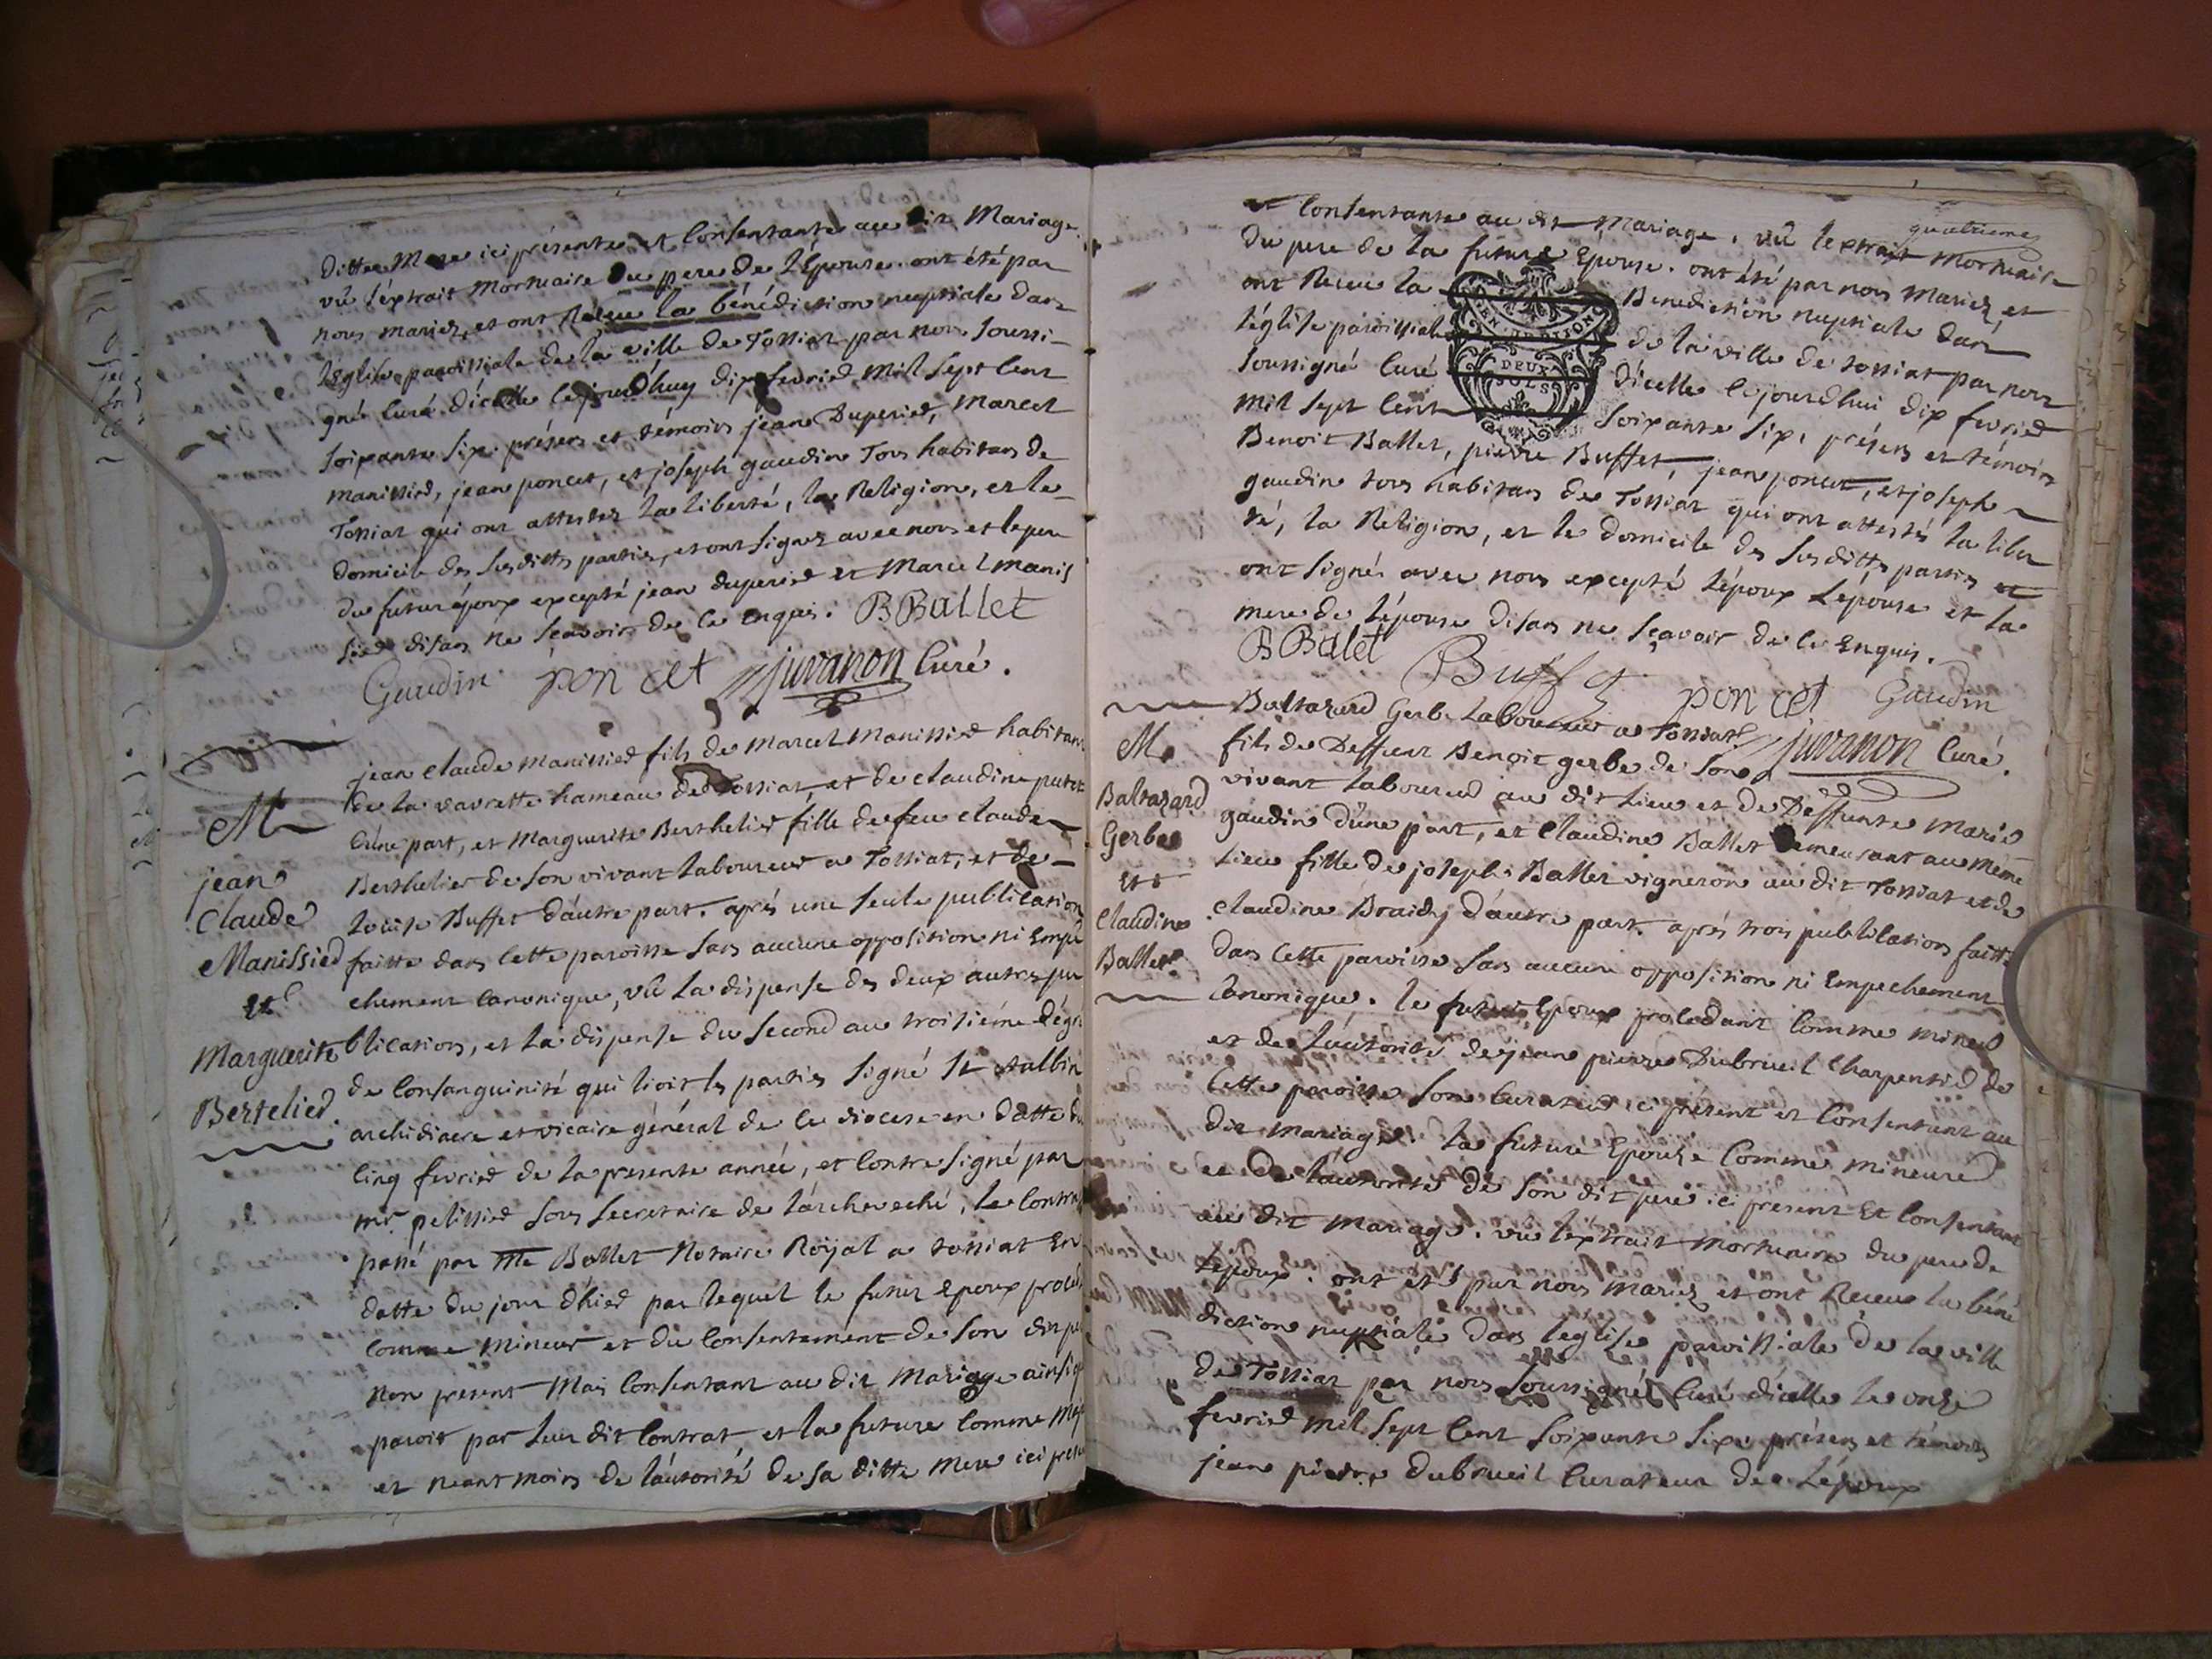 ditte Mere ici présente et Consentante au dit Mariage.
vû l'éxtrait mortuaire du pere de l'Epouse. ont été par
nous mariez, et ont Réceu la bénédiction nuptiale dans
l'Eglise paroissiale de la ville de Tossiat par nous soussi-
gné Curé d'icelle cejourdhuy dix fevrier mil sept cent
soixante six. présens et témoins jean Duperier, Marcel
manissier, jean poncet, et joseph gaudin Tous habitans de
Tossiat qui ont attestez la liberté, la Religion, et le
domicile des susdittes parties, et ont signez avec nous et le pere
du futur époux excepté jean duperier et Marcel manis
sier disans ne sçavoir de ce enquis. BBallet
Gaudin poncet juvanon Curé.
M
jean
Claude
Manissier
Et
Marguerite
Bertelier
jean Claude manissier fils de Marcel Manissier habitant
de la vavrette hameau de Tossiat, et de claudine putet
d'une part, et Marguerite Berthelier fille de feu claude
Berthelier de son vivant Laboureur a Tossiat, et de
Louise Buffet d'autre part. aprés une seule publication
faitte dans cette paroisse sans aucune opposition ni Empe
chement canonique, vû la dispense des deux autres pu
blications, et la dispense du second au troisiéme dégré
de consanguinité qui lioit les parties signé St Aulbin
archidiacre et vicaire général de ce diocese en datte du
cinq fevrier de la presente année, et contresigné par
mr pelissier sous secretaire de l'archeveché, le contrat
passé par Me Ballet Notaire Royal a tossiat En
datte du jour d'hier par lequel le futur Epoux proced
comme mineur et du consentement de son dit pere
non present mais consentant au dit mariage ainsi qu
paroit par leur dit contrat, et la future comme maj
et neantmoins de l'autorité de sa ditte mere ici presen
et Consentante au dit Mariage. vû l'extrait mortuaire
quatrieme
du pere de la future Epouse. ont été par nous mariez et
ont Receu la Benediction nuptiale dans
l'église paroissiale de la ville de tossiat par nous
soussigné Curé d'icelle cejourdhui dix fevrier
mil sept cent soixante six. présens et témoins
EN. DE DIJON
DEUX
SOLS
Benoit Ballet, pierre Buffet, jean poncet, et joseph
gaudin tous habitans de Tossiat qui ont attestés la liber
té, la Religion, et le domicile des susdittes parties et
ont signés avec nous excepté l'époux l'épouse et la
mere de l'épouse disans ne sçavoir de ce Enquis.
BBalet Buffet poncet Gaudin
juvanon Curé.
M
Baltazard
Gerbe
Et
Claudine
Ballet
Baltazard Gerbe Laboureur a Tossiat
fils de Deffunt Benoit gerbe de son
vivant Laboureur au dit Lieu et de Deffunte Marie
gaudin d'une part, et Claudine Ballet demeurant au même
Lieu fille de joseph Ballet vigneron au dit Tossiat et de
claudine Braidy d'autre part. aprés trois publications faittes
dans cette paroisse sans aucune opposition ni Empechement
Canonique. le futur Epoux procedant comme mineur
et de l'autorité de jean pierre Dubrueil Charpentier de
cette paroisse son curateur ici présent et consentant au
dit mariage. la future Epouse comme mineure
et de l'autorité de son dit pere ici present Et consentant
au dit mariage. vû l'éxtrait mortuaire du pere de
l'époux. ont été par nous mariez et ont Receu la béné
diction nuptiale dans l'eglise paroissiale de la ville
de Tossiat par nous soussigné Curé d'icelle le onze
fevrier mil sept cent soixante six. présens et témoins
jean pierre dubrueil Curateur de l'époux